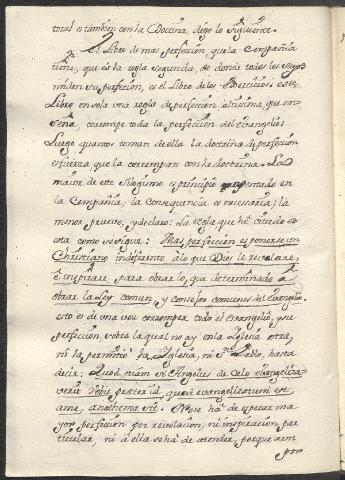 total tambien con la Doctrina, digo lo siguiente.
El Libro de mas perfeccion que la Compañia
tiene, que es la regla segunda, de donde todos los suyos
miden su perfecion, es el Libro de los Exercicios: este
Libro en sola una regla de perfecion altissima, que en-
seña, corrompe toda la perfeccion del evangelio:
Luego quantos toman de ella la doctrina de perfesion
es fuerza que la corrompan con la doctrina. La
maior de este silogismo es principio asentado en
la Compañia, la consequencia es necesaria; la
menor pruevo, y declaro: La regla que he citado es
esta como se sigue: Mas perfeccion es ponerse un
Christiano indiferente a lo que Dios le revelare,
è inspirare, para obrarlo, que determinado à
obrar la Ley comun, y consejos comunes del Evangelio.
esto es de una vez corromper todo el Evangelio, y su
perfeccion, sobre la qual no ay en la Iglesia otra,
ni la permitio la Iglesia, ni Sn. Pablo, hasta
decir: Quod etiam si Angelus de Celo evangeliza-
verit vobis preter id, quod evangelizatum est
a me, anathema sit. No se ha de esperar ma-
yor perfeccion por revelacion, ni inspiracion par-
ticular, ni à ella se ha de atender, porque aun
por